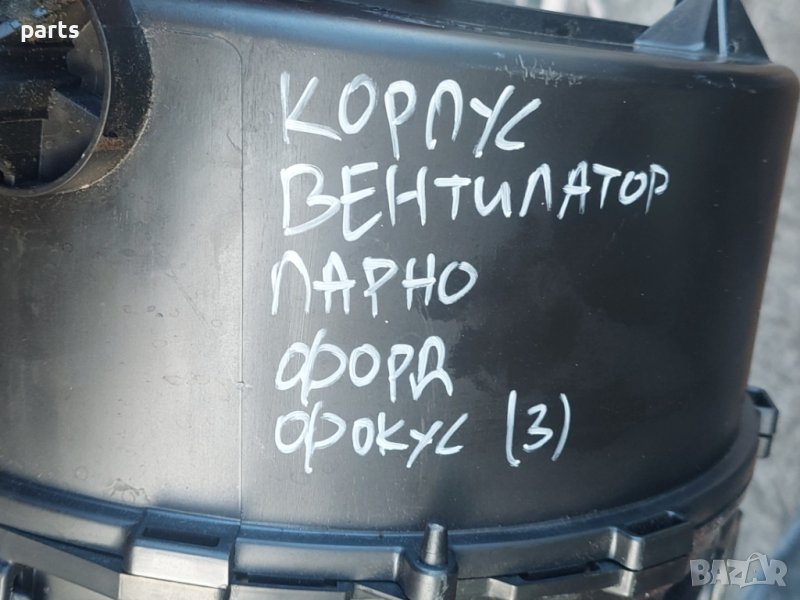 parts
КОРПУС
ВЕНТИЛАТОР
ПАРНО
ФОРД
ФОКУС (3)
BAZAR